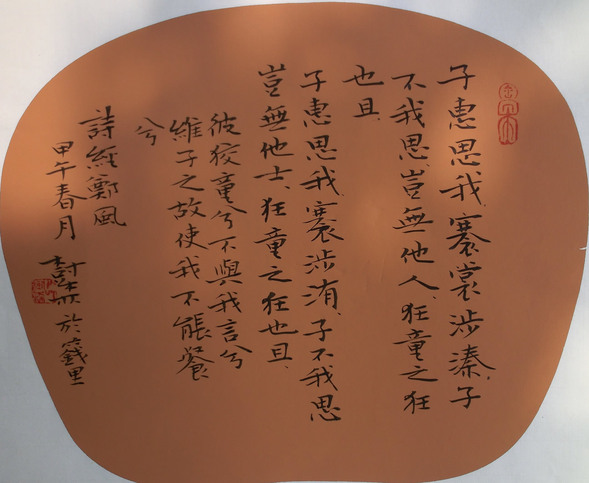 子惠思我、褰裳涉溱、子
不我思、豈無他人、狂童之狂
也且、
子惠思我、褰涉洧、子不我思
豈無他士、狂童之狂也且、
彼狡童兮不與我言兮
維子之故使我不能餐
兮
詩經鄭風
甲午春月 於籛里